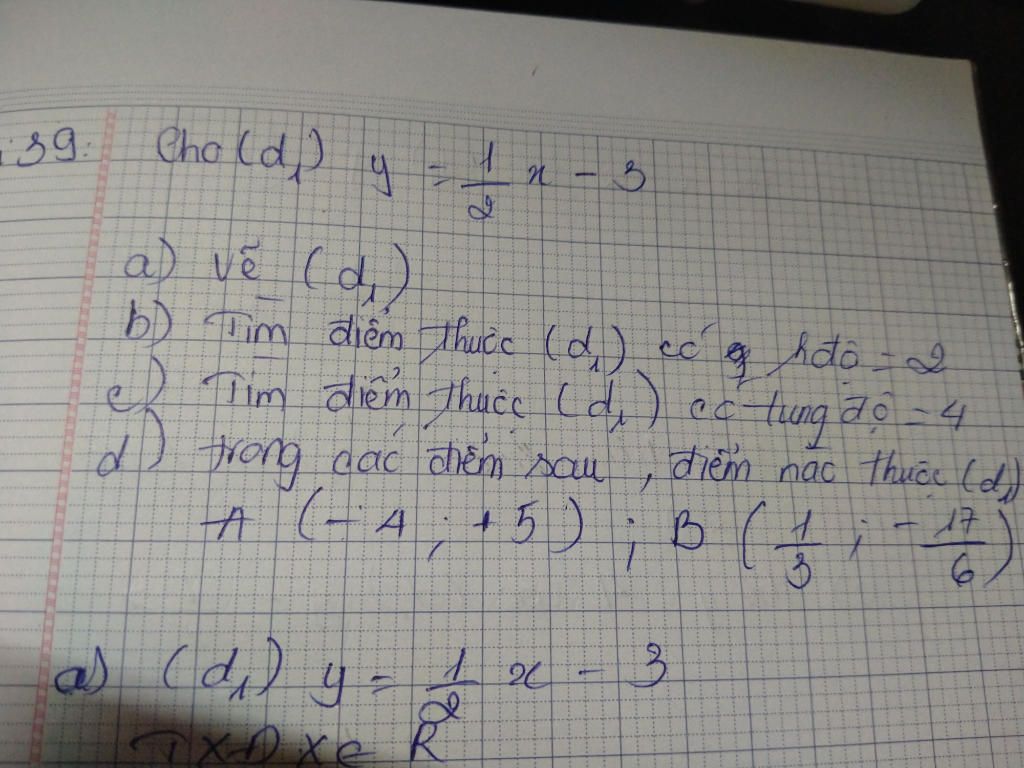 39: Cho (d₁) y = 1/2 x - 3
a) Vẽ (d₁)
b) Tìm điểm thuộc (d₁) có hđộ = 2
c) Tìm điểm thuộc (d₁) có tung độ = 4
d) trong các điểm sau, điểm nào thuộc (d₁)
A (-4; +5); B (1/3; -17/6)
a) (d₁) y = 1/2 x - 3
TXĐ x ∈ R